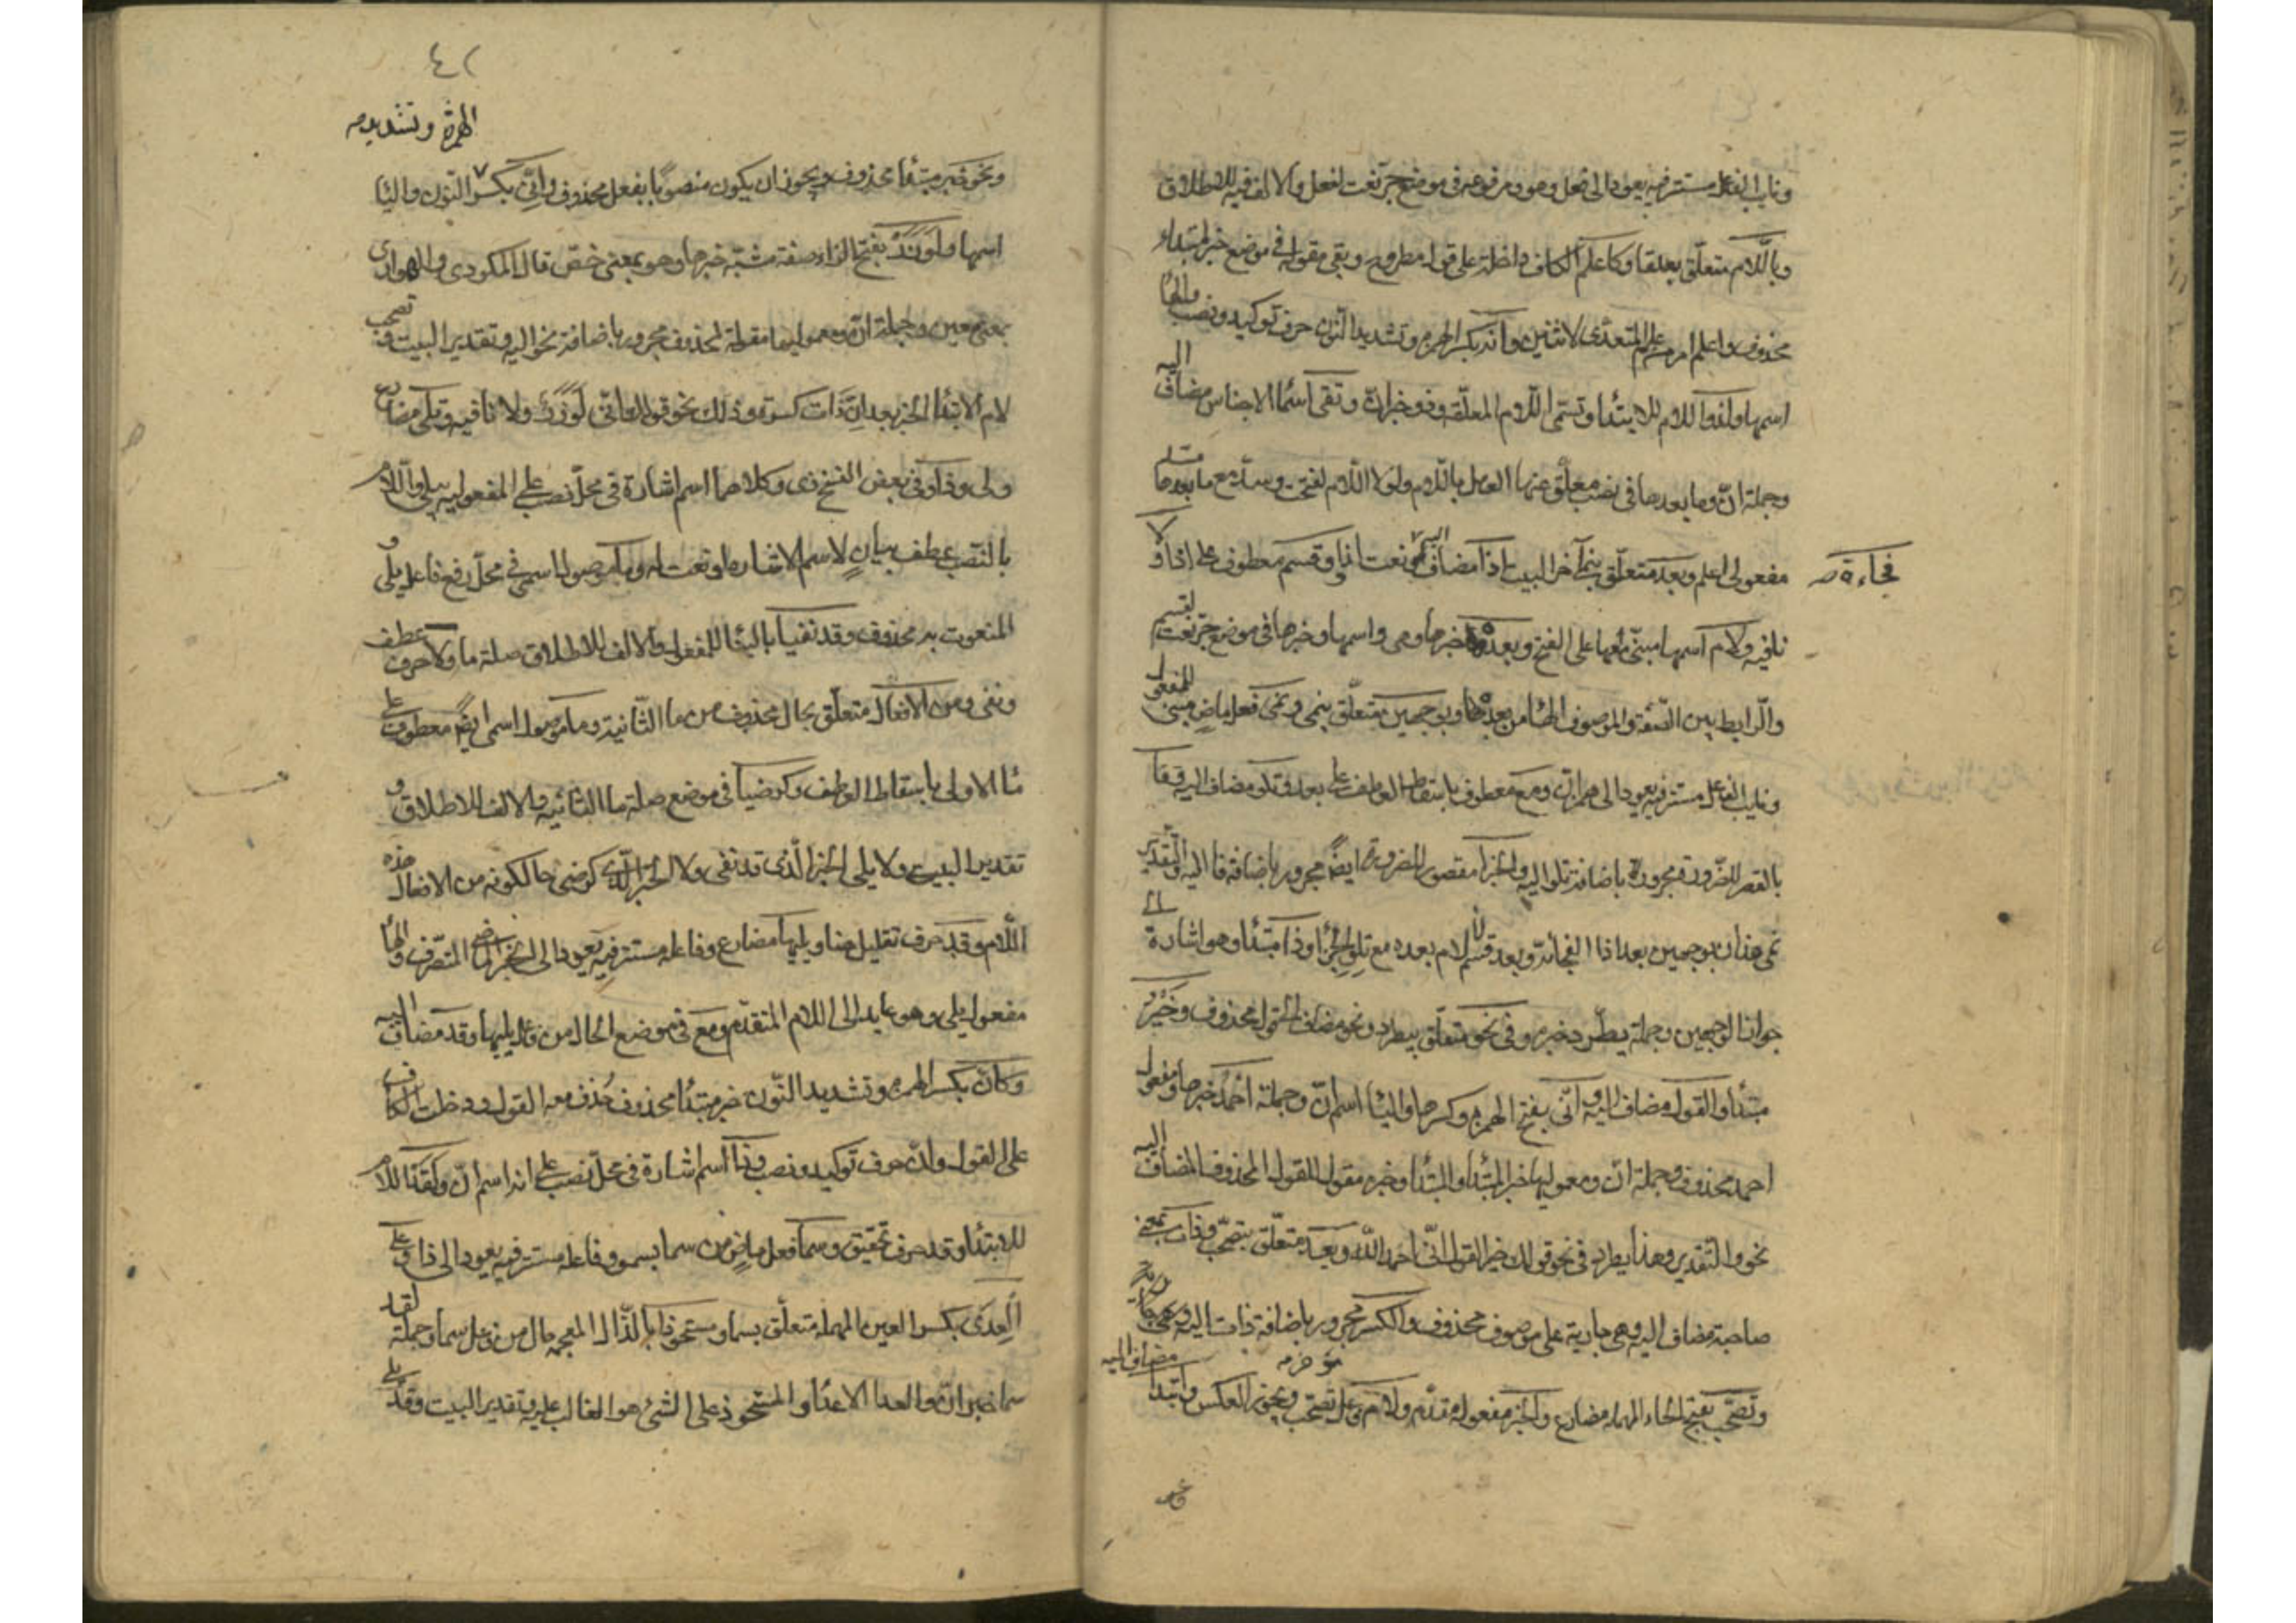 ونايب الفاعل مستتر فيه يعود الى فعل وهو ومرفوعه في موضع جر نعت لفعل والالف فيه للاطلاق
وباللام متعلق بعلقا وكاعلم الكاف داخلة على قول مطروح وبقي مقوله في موضع خبر لمبتداء
محذوف واعلم امر من علم المتعدى لاثنين وانه بكسر الهمزة وتشديد النون حرف توكيد ونصب والهاء
اسمها ولذو اللام للابتدا وتسمى اللام المعلقة وذو خبر ان وتقى اسماء الاجناس مضاف اليه
وجملة ان وما بعدها في نصب معلق عنها العمل باللام ولولا اللام لفتحت وسدت مع ما بعدها مسد
مفعولى اعلم وبعد متعلق بنمى آخر البيت واذا مضاف اليه نعت لاذا وقسم معطوف على اذا ولا
فجاءة صح
نافيه ولام اسمها مبنى معها على الفتح وبعده خبرها وهى واسمها وخبرها في موضع جر نعت لقسم
والرابط بين الصفة والموصوف الهاء من بعده وبوجهين متعلق بنمى ونمى فعل ماض مبنى للمفعول
ونايب الفاعل مستتر فيه يعود الى همز ان ومع معطوف باسقاط العاطف على بعد وتلو مضاف اليه وفا
بالقصر للضرورة مجرورة باضافة تلو اليه والجزا مقصور للضرورة ايضا مجرور باضافة فا اليه والتقدير
نمى همز ان بوجهين بعد اذا الفجائة وبعد قسم لا لام بعده مع تلو فا الجزا وذا مبتدا وهو اشارة الى
جواز الوجهين وجملة يطرد خبره وفي نحو متعلق بيطرد ونحو مضاف لقول محذوف وخير
مبتدأ والقول مضاف اليه وانى بفتح الهمزة وكسرها والياء اسم ان وجملة احمد خبرها ومفعول
احمد محذوف وجملة ان ومعموليها خبر المبتدأ والمبتدأ وخبره مقول للقول المحذوف المضاف اليه
نحو والتقدير وهذا يطرد في نحو قولك خير القول انى احمد الله وبعد متعلق بتصحب وذات بمعنى
صاحبة مضاف اليه وهى جارية على موصوف محذوف والكسر مجرور باضافة ذات اليه
وتصحب بفتح الحاء المهملة مضارع والخبر مفعوله مقدم ولام فاعل تصحب مؤخر ويجوز العكس وابتدا مضاف اليه
وتحو
٤٢
الهمزة وتشديد صح
ونحو خبر مبتدأ محذوف ويجوز ان يكون منصوبا بفعل محذوف وانى بكسر النون والياء
اسمها ولوزر بفتح الزاء صفة مشبة خبرها وهو بمعنى حصن قال المكودى والهوارى
بمعنى معين وجملة ان ومعموليها مقولة لمحذوف مجرور باضافة نحو اليه وتقدير البيت وتصحب
لام الابتدا الخبر بعد ان ذات كسرة وذلك نحو قولك انى لوزر ولا نافيه وتلى مضارع
ولى وذا وفى بعض النسخ ذى وكلاهما اسم اشارة فى محل نصب على المفعولية بيلى واللام
بالنصب عطف بيان لاسم الاشارة او نعت له وما موصول اسمى في محل رفع فاعل يلى و
المنعوت به محذوف وقد نفيا بالبنا للمفعول والالف للاطلاق صلة ما ولا حرف عطف
ونفى ومن الافعال متعلق بحال محذوف من ما الثانية وما موصول اسمى ايضا معطوف على
ما الاولى باسقاط العاطف وكرضيا في موضع صلة ما الثانية والالف للاطلاق و
تقدير البيت ولا يلى الخبر الذى قد نفى ولا الخبر الذى كرضى حالكونه من الافعال هذه
اللام وقد حرف تقليل هنا ويليها مضارع وفاعله مستتر فيه يعود الى الماضى المتصرف والهاء
مفعول يلى وهو عايد الى اللام المتقدم ومع فى موضع الحال من فاعل يليها وقد مضاف اليه
وكان بكسر الهمزة وتشديد النون خبر مبتدأ محذوف حذف معه القول ودخلت الكاف
على القول وان حرف توكيد ونصب وذا اسم اشارة فى محل نصب على انه اسم ان ولقد اللام
للابتدا وقد حرف تحقيق وسما فعل ماض من سما يسمو وفاعله مستتر فيه يعود الى ذا وعلى
العدى بكسر العين المهملة متعلق بسما ومستحوذا بالذال المعجمة حال من فاعل سما وجملة لقد
سما خبر ان والعدا الاعداء والمستحوذ على الشئ هو الغالب عليه وتقدير البيت وقد يلى